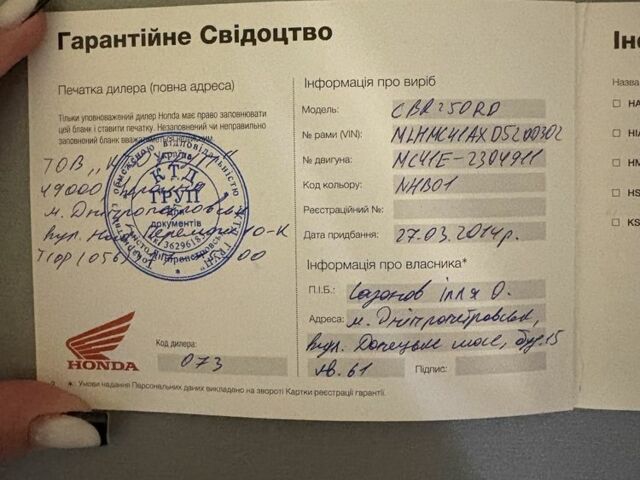 Гарантійне Свідоцтво
Печатка дилера (повна адреса)
Тільки уповноважений дилер Honda має право заповнювати
цей бланк і ставити печатку. Незаповнений чи неправильно
заповнений бланк вважається
ТОВ
49000
м. Дніпропетровськ
вул.
тел (056) 00
обмеженою відповідальністю
Україна
К.Т.Д.
ГРУП
для
документів
HONDA
Код дилера:
073
* : Умови надання Персональних даних викладено на звороті Картки реєстрації гарантії.
Інформація про виріб
Модель: CBR250RD
№ рами (VIN): MLHMC41AXD5200302
№ двигуна: MC41E-2304911
Код кольору: NHB01
Реєстраційний №:
Дата придбання: 27.03.2014р.
Інформація про власника*
П.І.Б.: Сазонов Ілля О.
Адреса: м. Дніпропетровськ,
вул. Донецьке шосе, буд. 15
кв. 61 Підпис:
Ін
Назва
HA
HI
HM
HS
KS